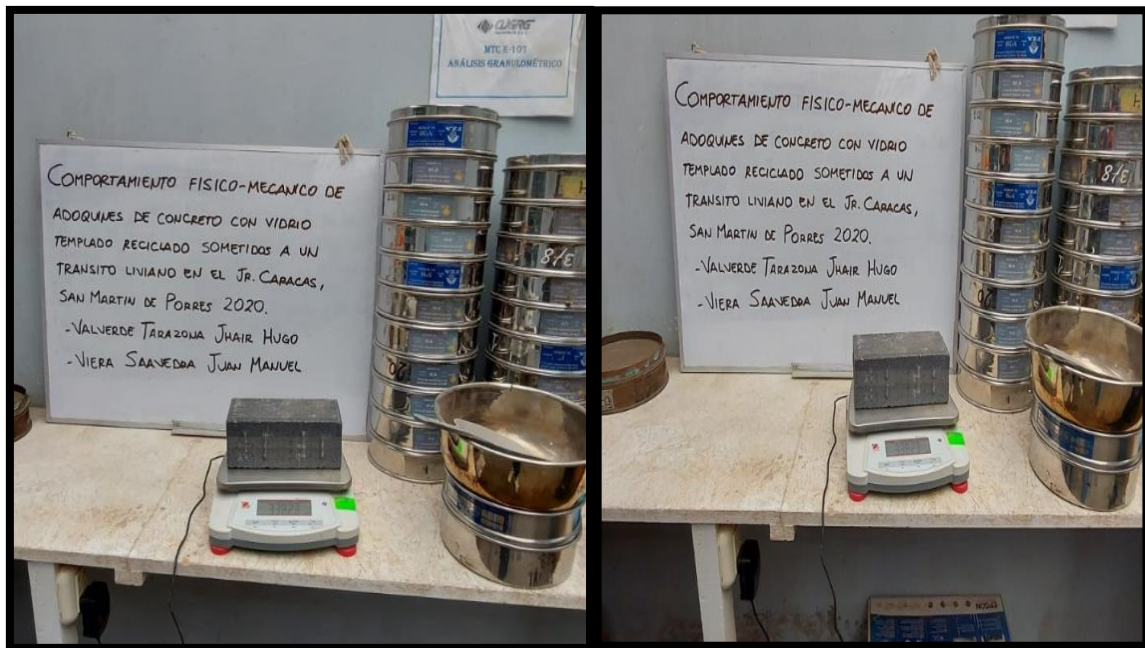 MTC E-107
ANÁLISIS GRANULOMÉTRICO
COMPORTAMIENTO FÍSICO-MECANICO DE
ADOQUINES DE CONCRETO CON VIDRIO
TEMPLADO RECICLADO SOMETIDOS A UN
TRANSITO LIVIANO EN EL JR. CARACAS,
SAN MARTIN DE PORRES 2020.
-VALVERDE TARAZONA JHAIR HUGO
-VIERA SAAVEDRA JUAN MANUEL
3/8
COMPORTAMIENTO FÍSICO-MECANICO DE
ADOQUINES DE CONCRETO CON VIDRIO
TEMPLADO RECICLADO SOMETIDOS A UN
TRANSITO LIVIANO EN EL JR. CARACAS,
SAN MARTIN DE PORRES 2020.
-VALVERDE TARAZONA JHAIR HUGO
-VIERA SAAVEDRA JUAN MANUEL
3/8
EPSON